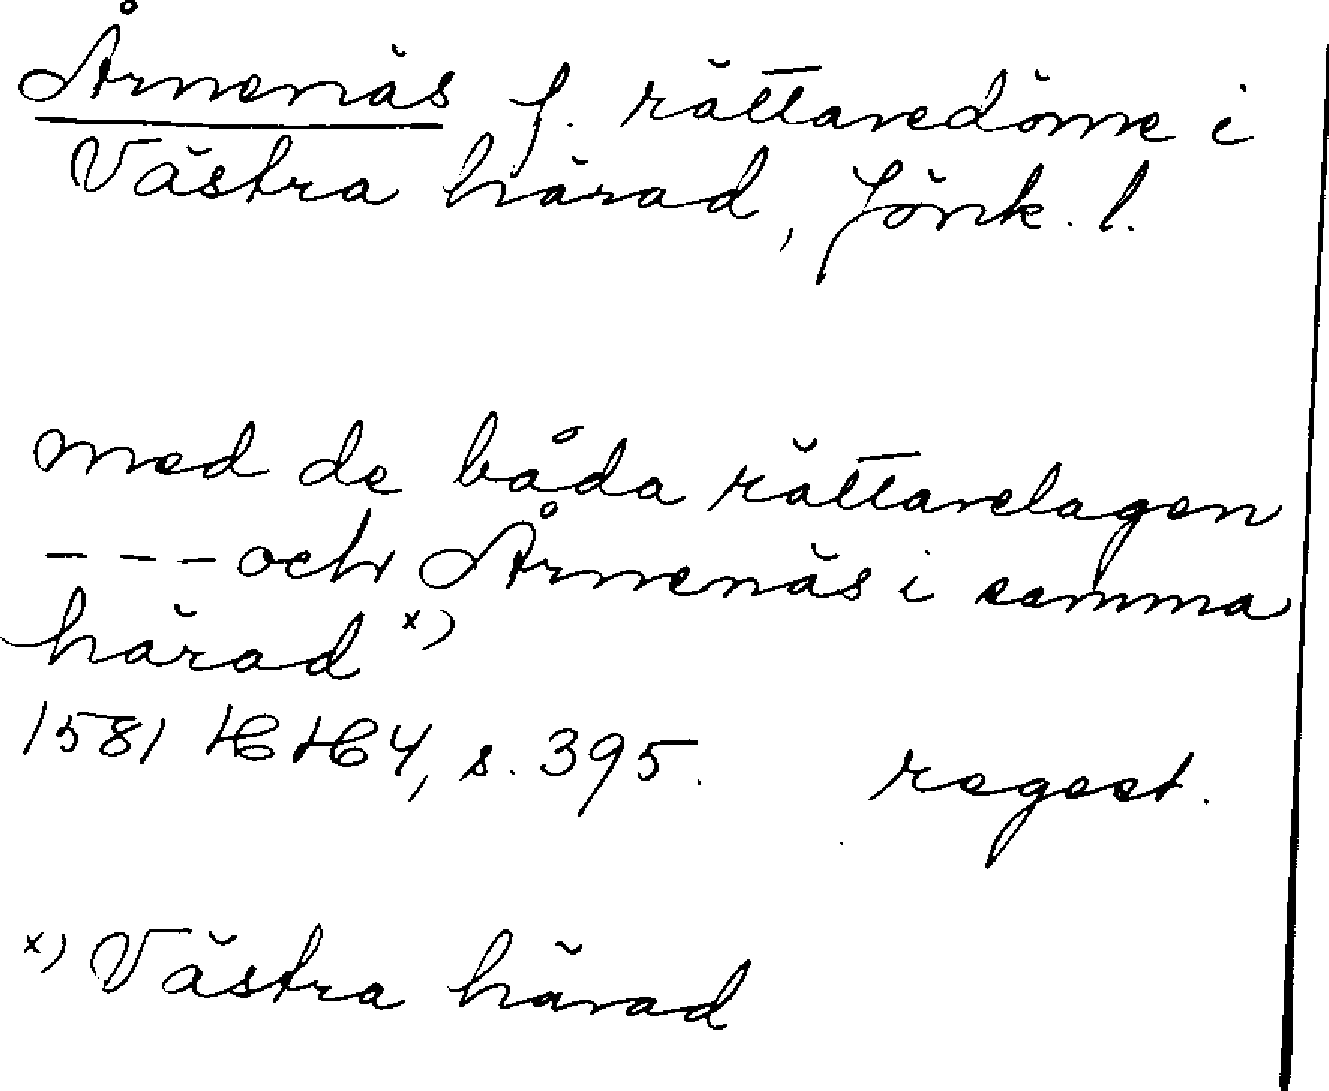 Årnenäs f. rättaredöme i
Västra härad, Jönk. l.
med de båda rättarelagen
--- och Årnenäs i samma
härad x)
1581 HH4, s. 395. regest.
x) Västra härad